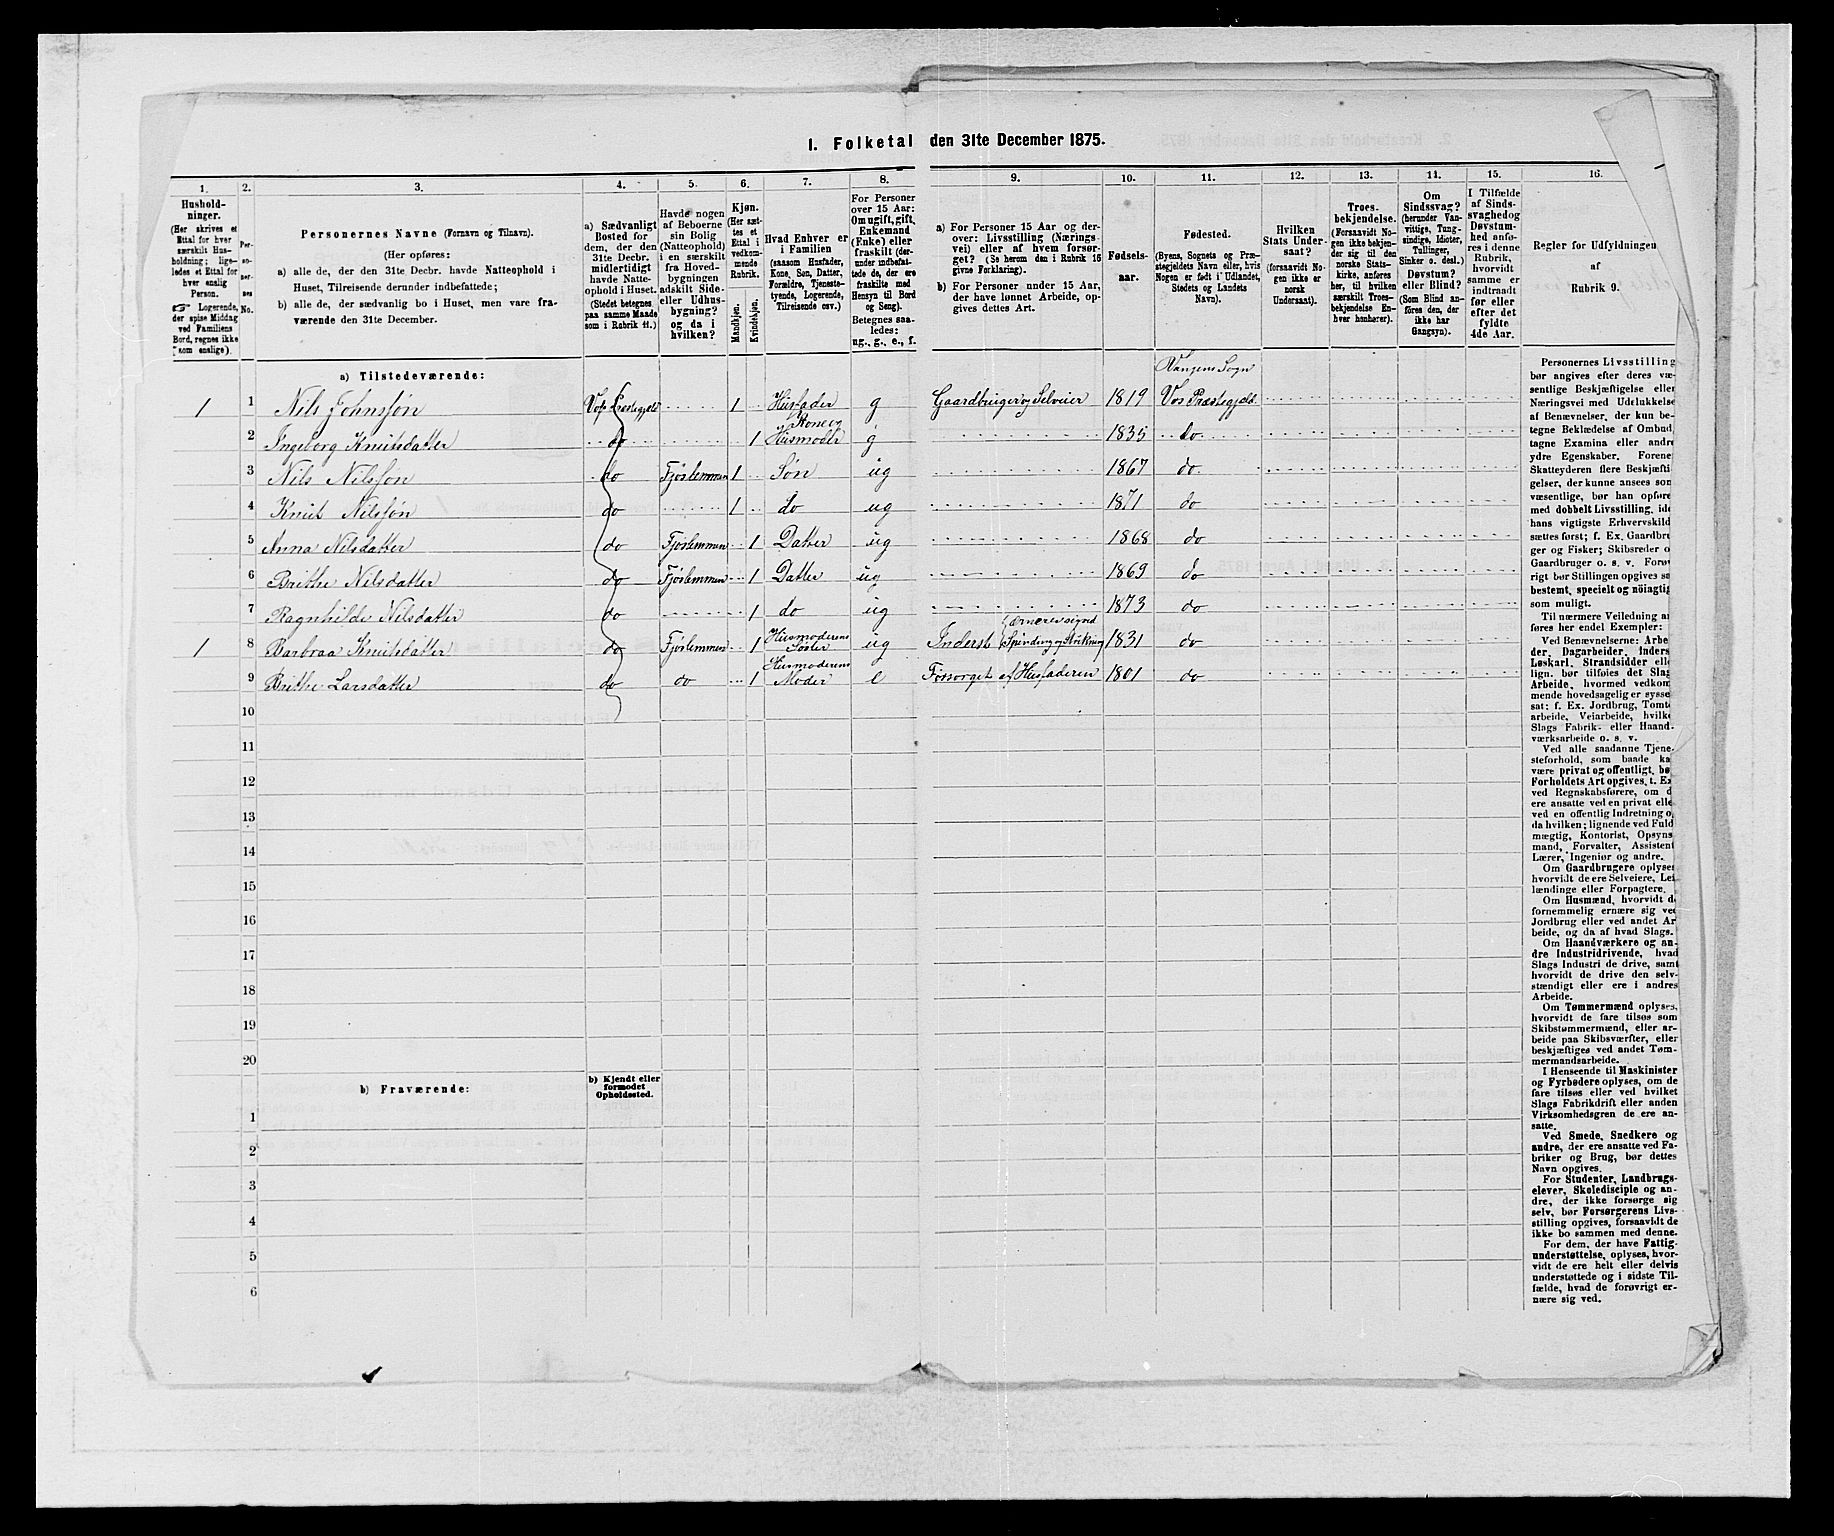 I. Folketal den 31te December 1875.
1. 2. 3. 4. 5. 6. 7. 8. 9. 10. 11. 12. 13. 14. 15. 16.
Hushold-
ninger.
(Her skrives et
Ettal for hver
særskilt Hus-
holdning; lige-
ledes et Ettal for
hver enslig
Person.
☞ Logerende,
der spise Middag
ved Familiens
Bord, regnes ikke
som enslige).
Per-
so-
ner-
nes
No.
Personernes Navne (Fornavn og Tilnavn).
(Her opføres:
a) alle de, der den 31te Decbr. havde Natteophold i
Huset, Tilreisende derunder indbefattede;
b) alle de, der sædvanlig bo i Huset, men vare fra-
værende den 31te December.
a) Sædvanligt
Bosted for
dem, der den
31te Decbr.
midlertidigt
havde Natte-
ophold i Huset.
(Stedet betegnes
paa samme Maade
som i Rubrik 11.)
Havde nogen
af Beboerne
sin Bolig
(Natteophold)
i en særskilt
fra Hoved-
bygningen
adskilt Side-
eller Udhus-
bygning?
og da i
hvilken?
Kjøn.
(Her sæt-
tes et
Ettal i
vedkom-
mende
Rubrik.
Mandkjøn.
Kvindekjøn.
Hvad Enhver er
i Familien
(saasom Husfader,
Kone, Søn, Datter,
Forældre, Tjeneste-
tyende, Logerende,
Tilreisende osv.)
For Personer
over 15 Aar:
Om ugift, gift,
Enkemand
(Enke) eller
fraskilt (der-
under indbefat-
tede de, der ere
fraskilte med
Hensyn til Bord
og Seng).
Betegnes saa-
ledes:
ug., g., e., f.
a) For Personer 15 Aar og der-
over: Livsstilling (Nærings-
vei) eller af hvem forsør-
get? (Se herom den i Rubrik 16
givne Forklaring).
b) For Personer under 15 Aar,
der have lønnet Arbeide, op-
gives dettes Art.
Fødsels-
aar.
Fødested.
(Byens, Sognets og Præ-
stegjeldets Navn eller, hvis
Nogen er født i Udlandet,
Stedets og Landets
Navn).
Hvilken
Stats Under-
saat?
(forsaavidt No-
gen ikke er
norsk
Undersaat).
Troes-
bekjendelse.
(Forsaavidt No-
gen ikke bekjen-
der sig til den
norske Stats-
kirke, anføres
her, til hvilken
særskilt Troes-
bekjendelse En-
hver henhører).
Om
Sindssvag?
(herunder Van-
vittige, Tung-
sindige, Idioter,
Tullinger,
Sinker o. desl.)
Døvstum?
eller Blind?
(Som Blind an-
føres den, der
ikke har
Gangsyn).
I Tilfælde
af Sinds-
svaghed og
Døvstum-
hed anfø-
res i denne
Rubrik,
hvorvidt
samme er
indtraadt
før eller
efter det
fyldte
4de Aar.
Regler for Udfyldningen
af
Rubrik 9.
a) Tilstedeværende:
Vangens Sogn
1 1 Nils Johnssøn Vos Præstegjeld 1 Husfader g Gaardbruger og Selveier 1819 Vos Præstegjeld
2 Ingeborg Knutsdatter do 1 Kone og Husmoder g 1835 do
3 Nils Nilssøn do Fjøslemmen 1 Søn ug 1867 do
4 Knut Nilssøn do 1 do ug 1871 do
5 Anna Nilsdatter do Fjøslemmen 1 Datter ug 1868 do
6 Brithe Nilsdatter do Fjøslemmen 1 Datter ug 1869 do
7 Ragnhilde Nilsdatter do 1 do ug 1873 do
1 8 Barbraa Knutsdatter do Fjøslemmen 1 Husmoderens Søster ug Inderst ernærer sig ved Spinding og Strikning 1831 do
9 Brithe Larsdatter do do 1 Husmoderens Moder e Forsorget af Husfaderen 1801 do
10
11
12
13
14
15
16
17
18
19
20
b) Fraværende:
b) Kjendt eller
formodet
Opholdssted.
1
2
3
4
5
6
Personernes Livsstilling
bør angives efter deres væ-
sentlige Beskjæftigelse eller
Næringsvei med Udelukkelse
af Benævnelser, der kun be-
tegne Beklædelse af Ombud,
tagne Examina eller andre
ydre Egenskaber. Forener
Skatteyderen flere Beskjæfti-
gelser, der kunne ansees som
væsentlige, bør han opføres
med dobbelt Livsstilling, ide
hans vigtigste Erhvervskild
sættes først; f. Ex. Gaardbru
ger og Fisker; Skibsreder o
Gaardbruger o. s. v. Forøv
rigt bør Stillingen opgives sa
bestemt, specielt og nöiagtig
som muligt.
Til nærmere Veiledning an
føres her endel Exempler:
Ved Benævnelserne: Arbe
der, Dagarbeider, Inders
Løskarl, Strandsidder elle
lign. bør tilføies det Slag
Arbeide, hvormed vedkom
mende hovedsagelig er sysse
sat; f. Ex. Jordbrug, Tomte
arbeide, Veiarbeide, hvilke
Slags Fabrik- eller Haand-
værksarbeide o. s. v.
Ved alle saadanne Tjene-
steforhold, som baade ka
være privat og offentligt, bø
Forholdets Art opgives, t. Ex
ved Regnskabsførere, om d
ere ansatte ved en privat elle
ved en offentlig Indretning o
da hvilken; lignende ved Fuld
mægtig, Kontorist, Opsyns
mand, Forvalter, Assistent
Lærer, Ingeniør og andre.
Om Gaardbrugere oplyses
hvorvidt de ere Selveiere, Lei
lændinge eller Forpagtere.
Om Husmænd, hvorvidt d
fornemmelig ernære sig ved
Jordbrug eller ved andet Ar
beide, og da af hvad Slags.
Om Haandværkere og an-
dre Industridrivende, hvad
Slags Industri de drive, samt
hvorvidt de drive den selv-
stændigt eller ere i andres
Arbeide.
Om Tømmermænd oplyses,
hvorvidt de fare tilsøs som
Skibstømmermænd, eller ar-
beide paa Skibsværfter, eller
beskjæftiges ved andet Tøm-
mermandsarbeide.
I Henseende til Maskinister
og Fyrbødere oplyses, om de
fare tilsøs eller ved hvilket
Slags Fabrikdrift eller anden
Virksomhedsgren de ere an-
satte.
Ved Smede, Snedkere og
andre, der ere ansatte ved Fa-
briker og Brug, bør dettes
Navn opgives.
For Studenter, Landbrugs-
elever, Skoledisciple og an-
dre, der ikke forsørge sig
selv, bør Forsørgerens Livs-
stilling opgives, forsaavidt de
ikke bo sammen med denne.
For dem, der have Fattig-
understøttelse, oplyses, hvor-
vidt de ere helt eller delvis
understøttede og i sidste Til-
fælde, hvad de forøvrigt er-
nære sig ved.